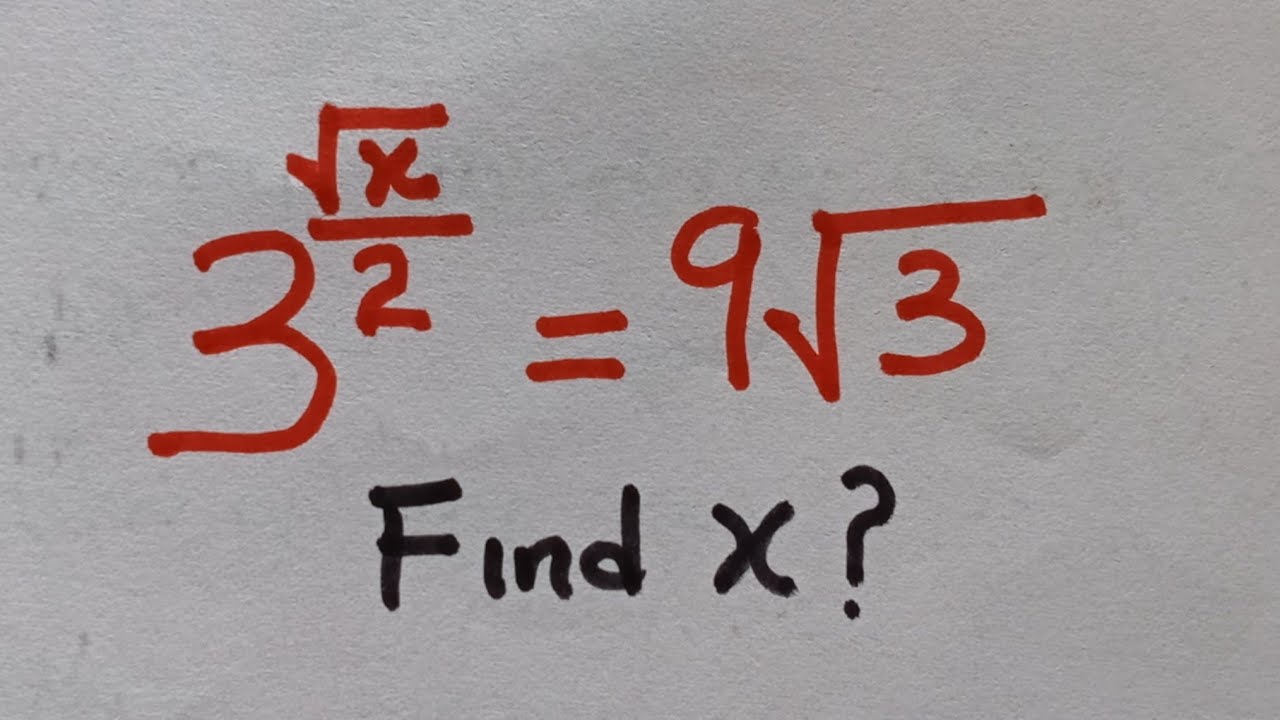 3^{\frac{\sqrt{x}}{2}} = 9\sqrt{3}
Find x?